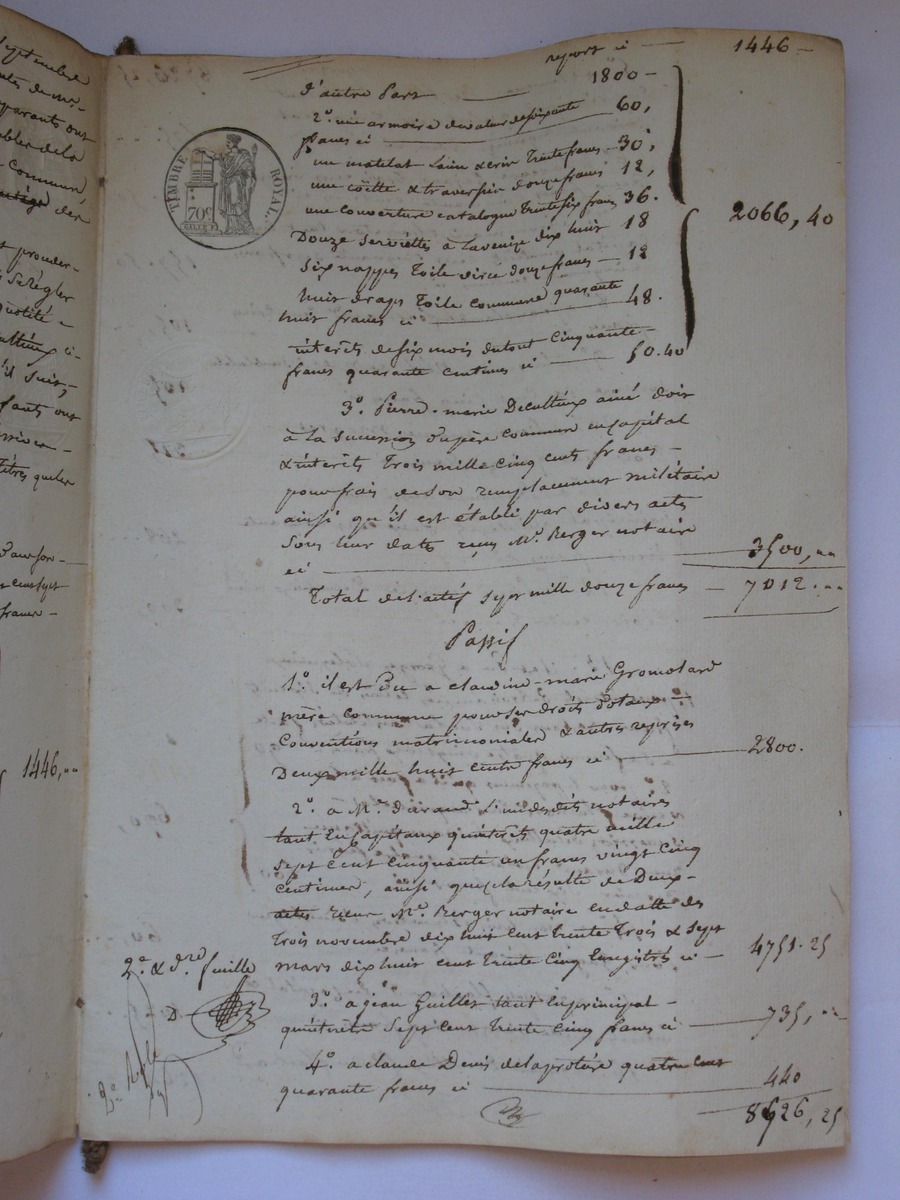 report ci — 1446 —
d'autre Part — 1800 —
2º. une armoire de valeur de soixante 60,
francs ci
un matelat laine & crin trente francs — 30,
une coëtte & traversin douze francs 12,
une couverture catalogne trente six francs 36.
2066, 40
Douze serviettes à la venize dix huit 18
six nappes toile douze francs — 12
huit draps toile commune quarante
huit francs ci — 48.
intérêts de six mois du tout cinquante
francs quarante centimes ci — 50.40
3º. Pierre-marie Decultieux ainé doit
à la succession du père commun en capital
& intérêts trois mille cinq cents francs —
pour frais de son remplacement militaire
ainsi qu'il est établi par divers actes
sous leur date reçus Mᵉ. Berger notaire
ci — 3500, ..
Total de l'actif sept mille douze francs — 7012. ..
Passif
1º. il est Du a claudine-marie Gromolard
mère commune pour ses droits dotaux —
conventions matrimoniales & autres reprises
Deux mille huit cents francs ci — 2800.
2º. a Mᵉ. Durand l'un desdits notaires
tant en capitaux qu'intérêts quatre mille
sept cent cinquante un francs vingt cinq
centimes, ainsi que cela résulte de Deux
actes reçus Mᵉ. Berger notaire en datte des
trois novembre dix huit cent trente trois & sept
mars dix huit cent trente cinq enregistrés ci — 4751.25
3º. a jean Guillet tant en principal —
qu'intérêts sept cent trente cinq francs ci — 735, ..
4º. a claude Denis delaprotéré quatre cent
quarante francs ci — 440
8526, 25
2ᵉ. & dʳᵉ. feuille
D
TIMBRE ROYAL.
70ᶜ
1446, ..